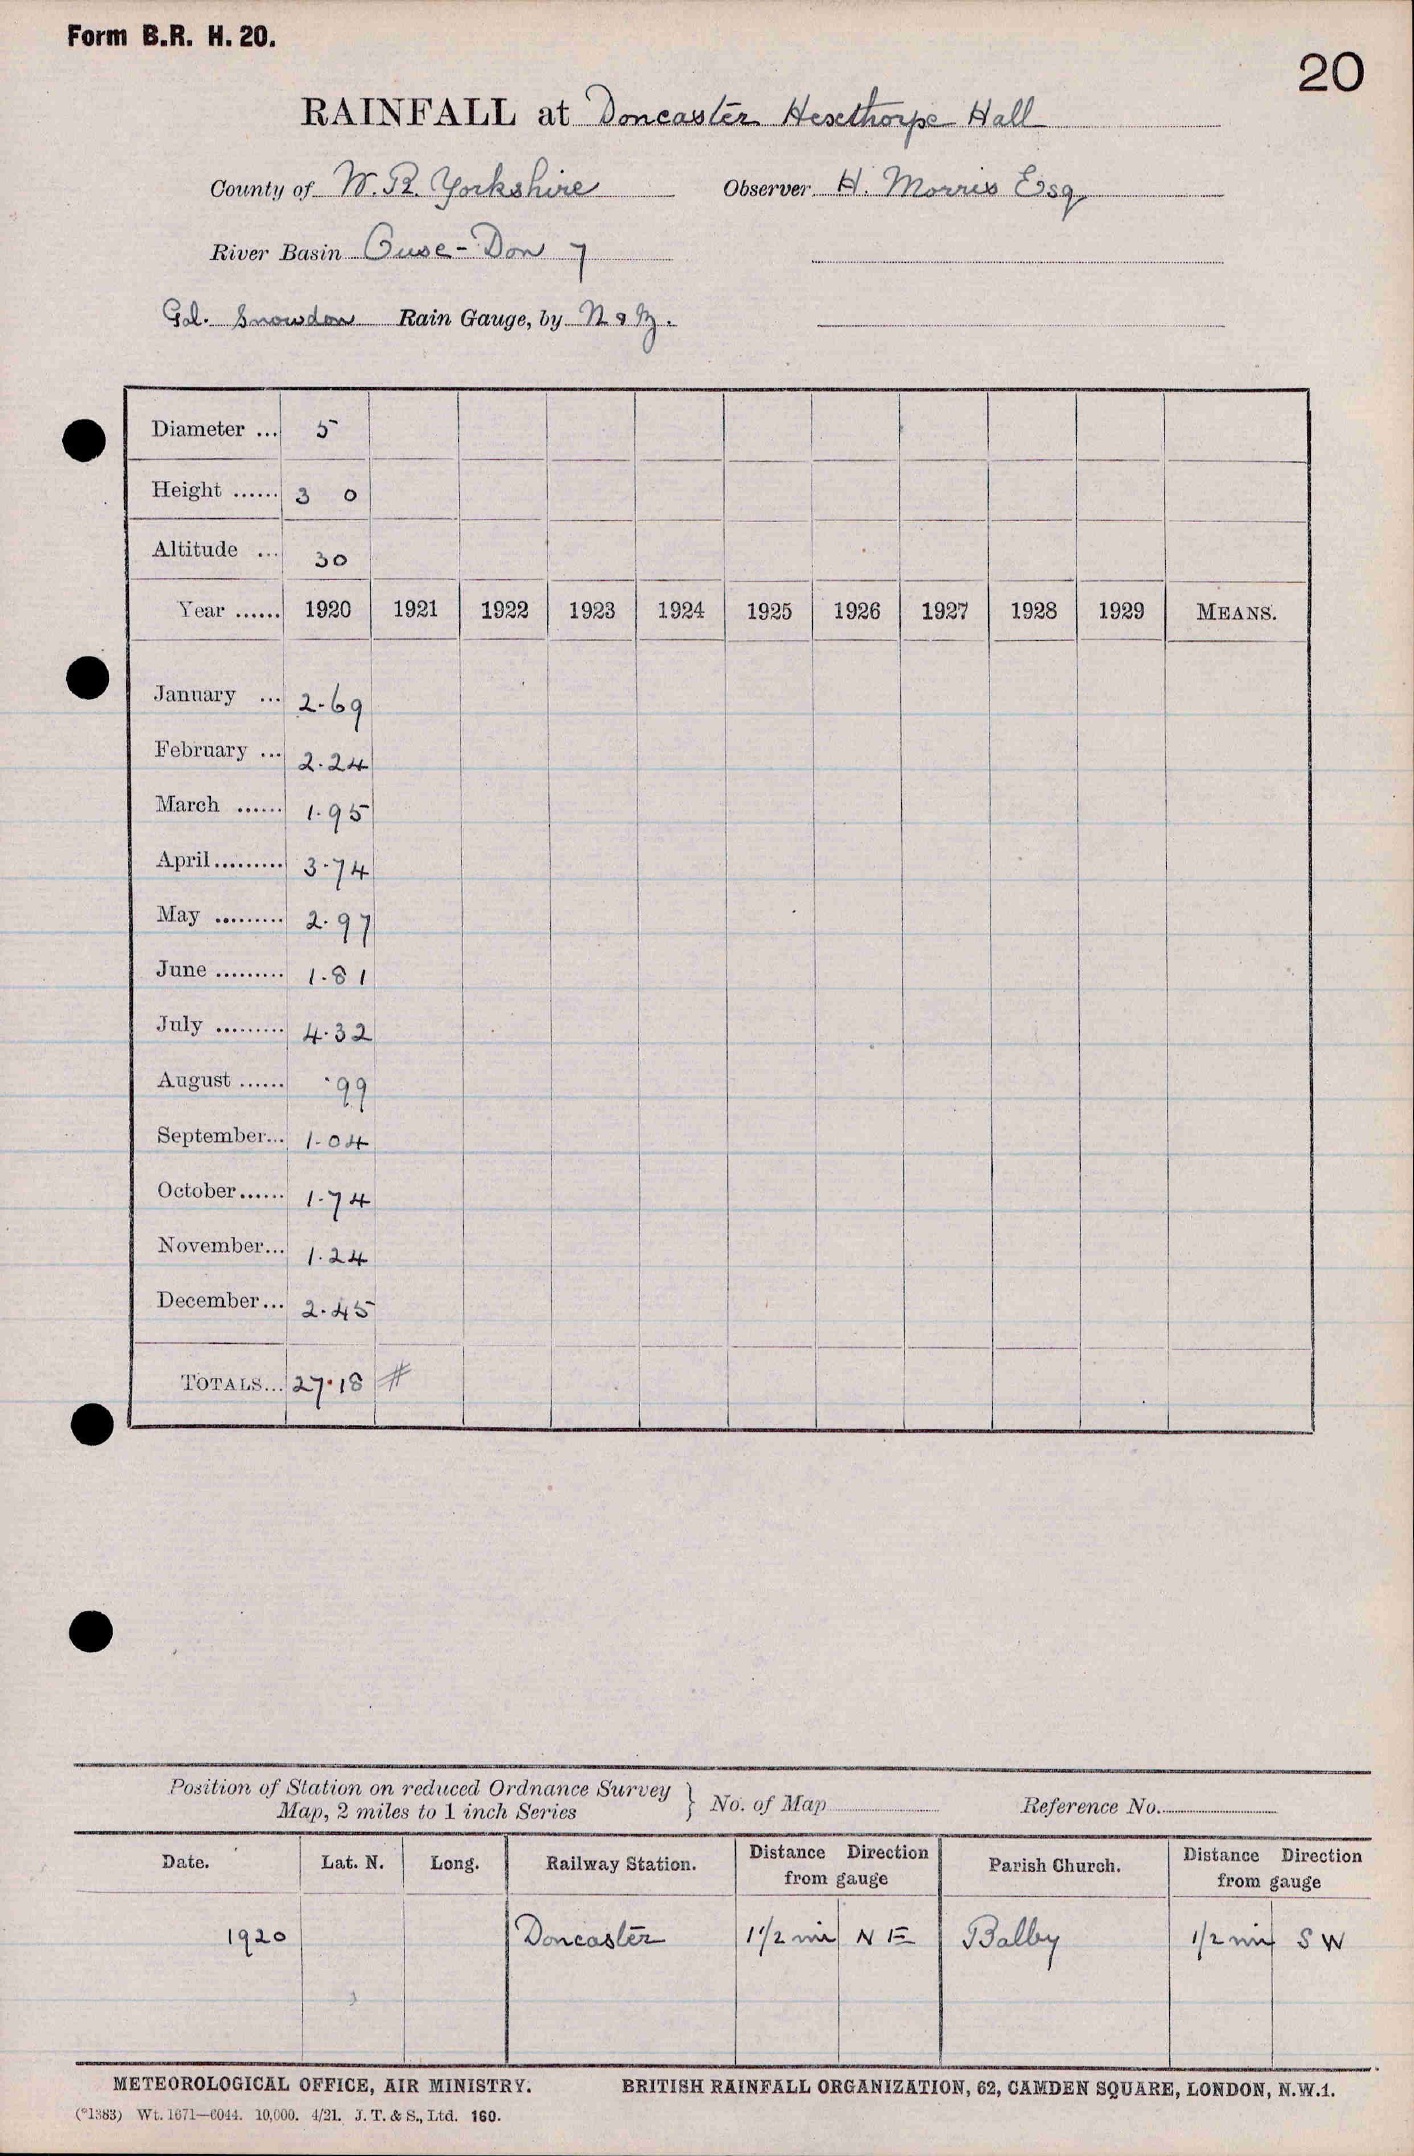 Form B.R. H. 20.
20
RAINFALL at Doncaster Hexthorpe Hall
County of W. R. Yorkshire Observer H. Morris Esq
River Basin Ouse - Don 7
Gd. Snowdon Rain Gauge, by N & Z.
Diameter ... 5
Height ...... 3 0
Altitude ... 30
Year ...... 1920 1921 1922 1923 1924 1925 1926 1927 1928 1929 MEANS.
January ... 2.69
February ... 2.24
March ...... 1.95
April ......... 3.74
May ......... 2.97
June ......... 1.81
July ......... 4.32
August ...... .99
September... 1.04
October...... 1.74
November... 1.24
December... 2.45
TOTALS... 27.18 #
Position of Station on reduced Ordnance Survey
Map, 2 miles to 1 inch Series } No. of Map Reference No.
Date. Lat. N. Long. Railway Station. Distance Direction from gauge Parish Church. Distance Direction from gauge
1920 Doncaster 1 1/2 mi N E Balby 1/2 mi S W
METEOROLOGICAL OFFICE, AIR MINISTRY. BRITISH RAINFALL ORGANIZATION, 62, CAMDEN SQUARE, LONDON, N.W.1.
(*1383) Wt. 1671—6044. 10,000. 4/21. J. T. & S., Ltd. 160.